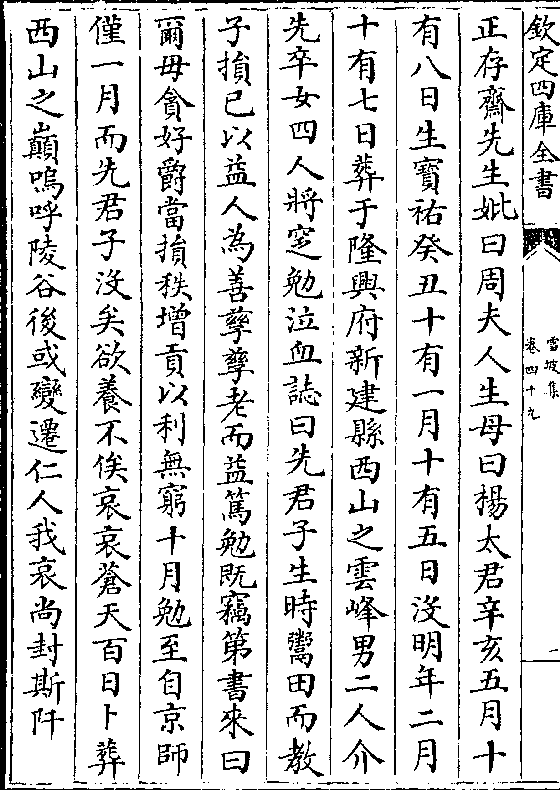 欽定四庫全書
雪坡集
卷四十九
一
正存齋先生妣曰周夫人生母曰楊太君辛亥五月十
有八日生寳祐癸丑十有一月十有五日沒明年二月
十有七日葬于隆興府新建縣西山之雲峰男二人介
先卒女四人將窆勉泣血誌曰先君子生時鬻田而教
子損已以益人為善孳孳老而益篤勉既竊第書來曰
爾毋貪好爵當損秩增貢以利無窮十月勉至自京師
僅一月而先君子沒矣欲養不俟哀哀蒼天百日卜葬
西山之巔嗚呼陵谷後或變遷仁人我哀尚封斯阡